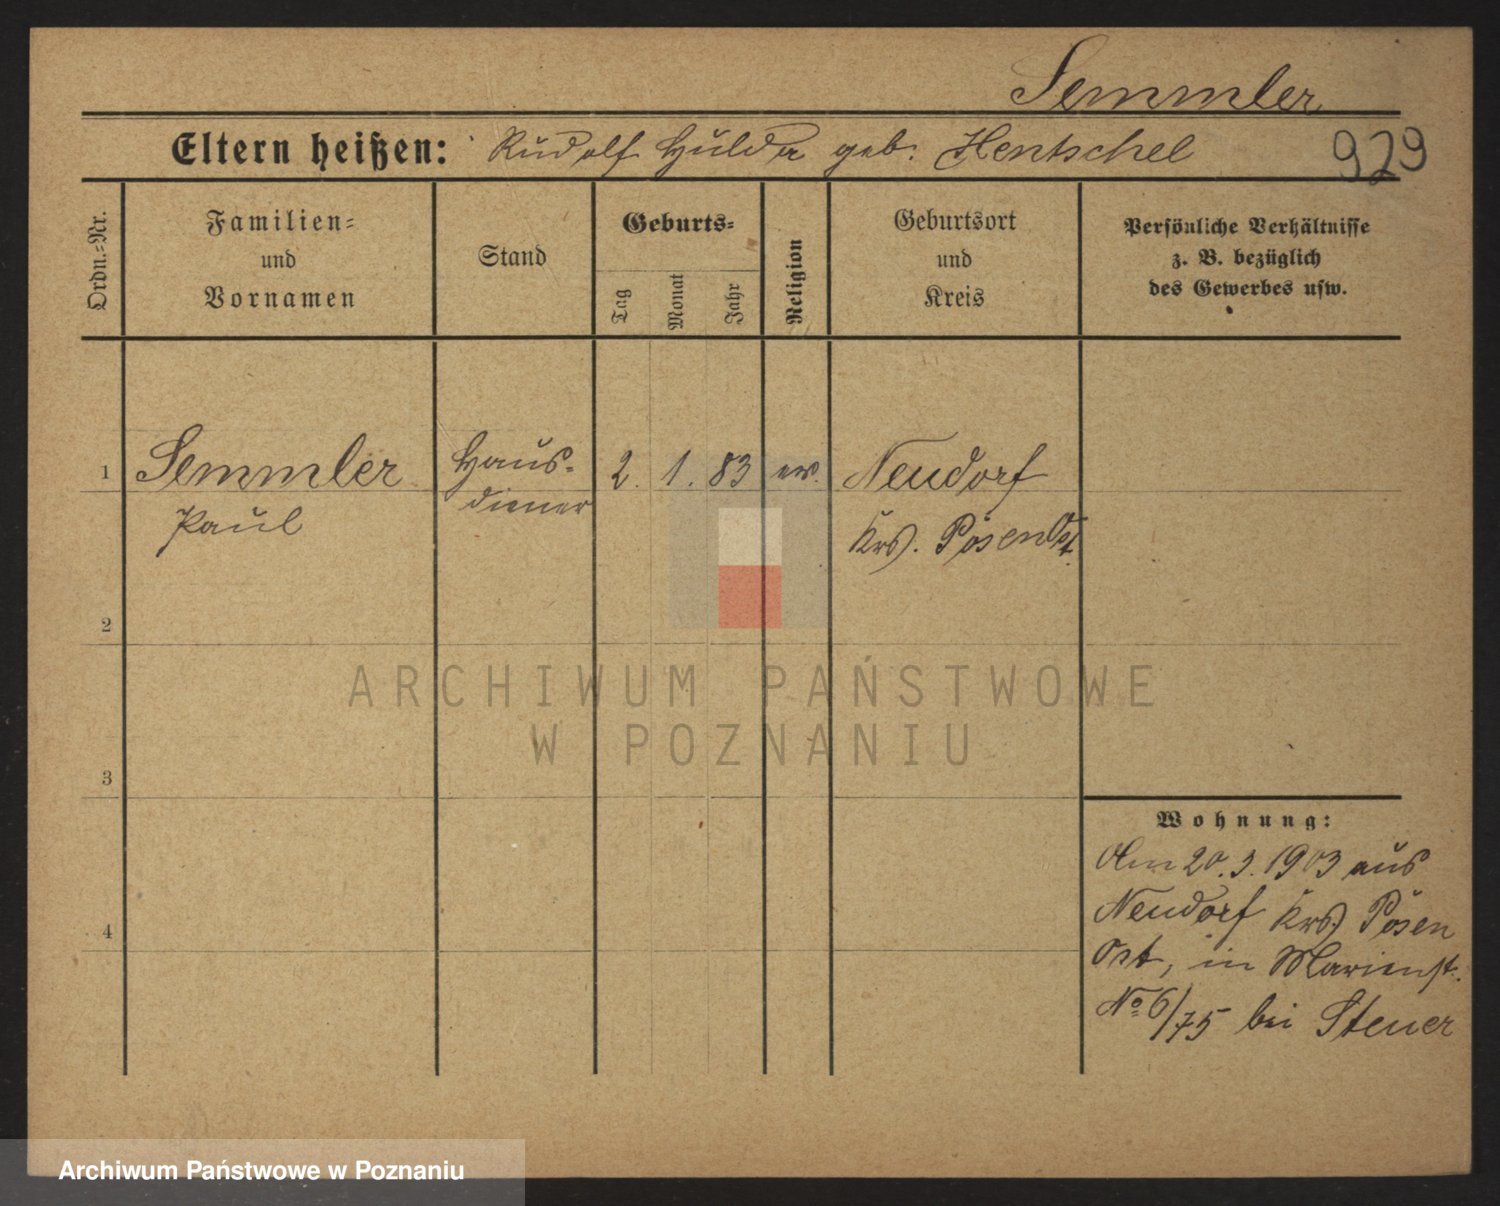 Semmler
Eltern heißen: Rudolf Hulda geb. Hentschel
929
Ordn.-Nr.
Familien-
und
Vornamen
Stand
Geburts-
Tag
Monat
Jahr
Religion
Geburtsort
und
Kreis
Persönliche Verhältnisse
z. B. bezüglich
des Gewerbes usw.
1 Semmler Haus- 2. 1. 83 ev. Neudorf
Paul diener Krs. Posen Ost.
2
ARCHIWUM PAŃSTWOWE
W POZNANIU
3
Wohnung:
Am 20.3.1903 aus
Neudorf Krs. Posen
4
Ost, in Marienst.
No 6/75 bei Steuer
Archiwum Państwowe w Poznaniu